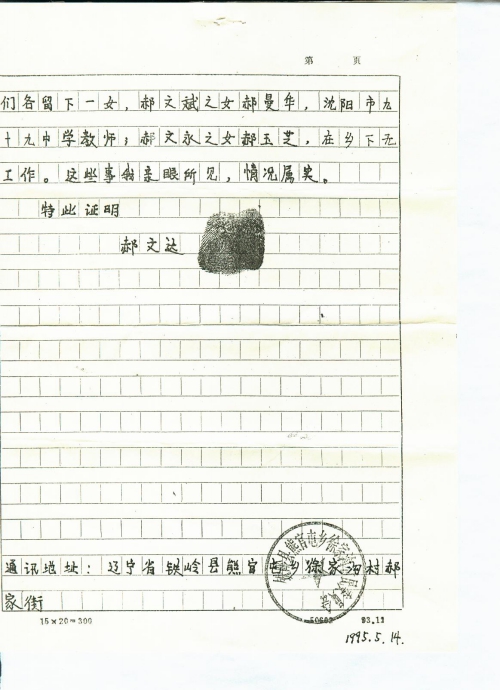 第 页
们各留下一女，郝文斌之女郝曼华，沈阳市九
十九中学教师；郝文永之女郝玉芝，在乡下无
工作。这些事我亲眼所见，情况属实。
特此证明
郝文达
通讯地址：辽宁省铁岭县熊官屯乡徐家沟村郝
家街
15×20=300 93.11
1995.5.14.